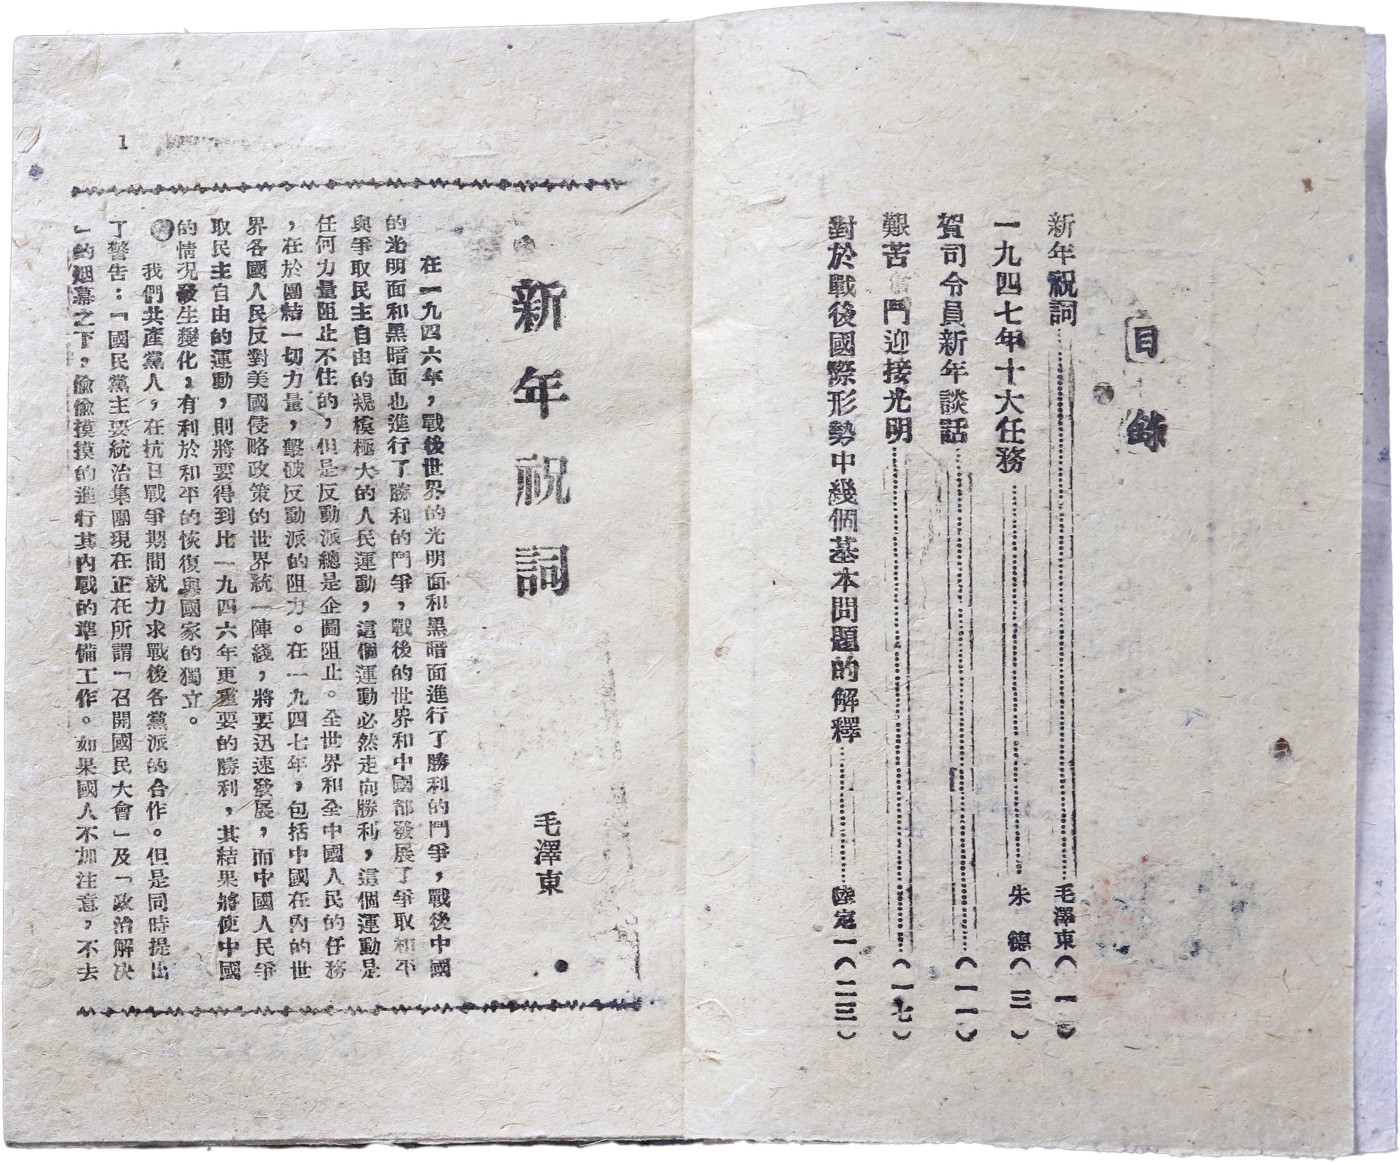 目錄
新年祝詞……毛澤東(一)
一九四七年十大任務……朱德(三)
賀司令員新年談話……(一一)
艱苦奮鬥迎接光明……(一七)
對於戰後國際形勢中幾個基本問題的解釋……陸定一(二三)
1
新年祝詞
毛澤東
在一九四六年，戰後世界的光明面和黑暗面進行了勝利的鬥爭，戰後中國
的光明面和黑暗面也進行了勝利的鬥爭，戰後的世界和中國都發展了爭取和平
與爭取民主自由的規模極大的人民運動，這個運動必然走向勝利，這個運動是
任何力量阻止不住的，但是反動派總是企圖阻止。全世界和全中國人民的任務
，在於團結一切力量，擊破反動派的阻力。在一九四七年，包括中國在內的世
界各國人民反對美國侵略政策的世界統一陣綫，將要迅速發展，而中國人民爭
取民主自由的運動，則將要得到比一九四六年更重要的勝利，其結果將使中國
的情况發生變化，有利於和平的恢復與國家的獨立。
我們共產黨人，在抗日戰爭期間就力求戰後各黨派的合作。但是同時提出
了警告：「國民黨主要統治集團現在正在所謂「召開國民大會」及「政治解决
」的烟幕之下，偸偸摸摸的進行其內戰的準備工作。如果國人不加注意，不去